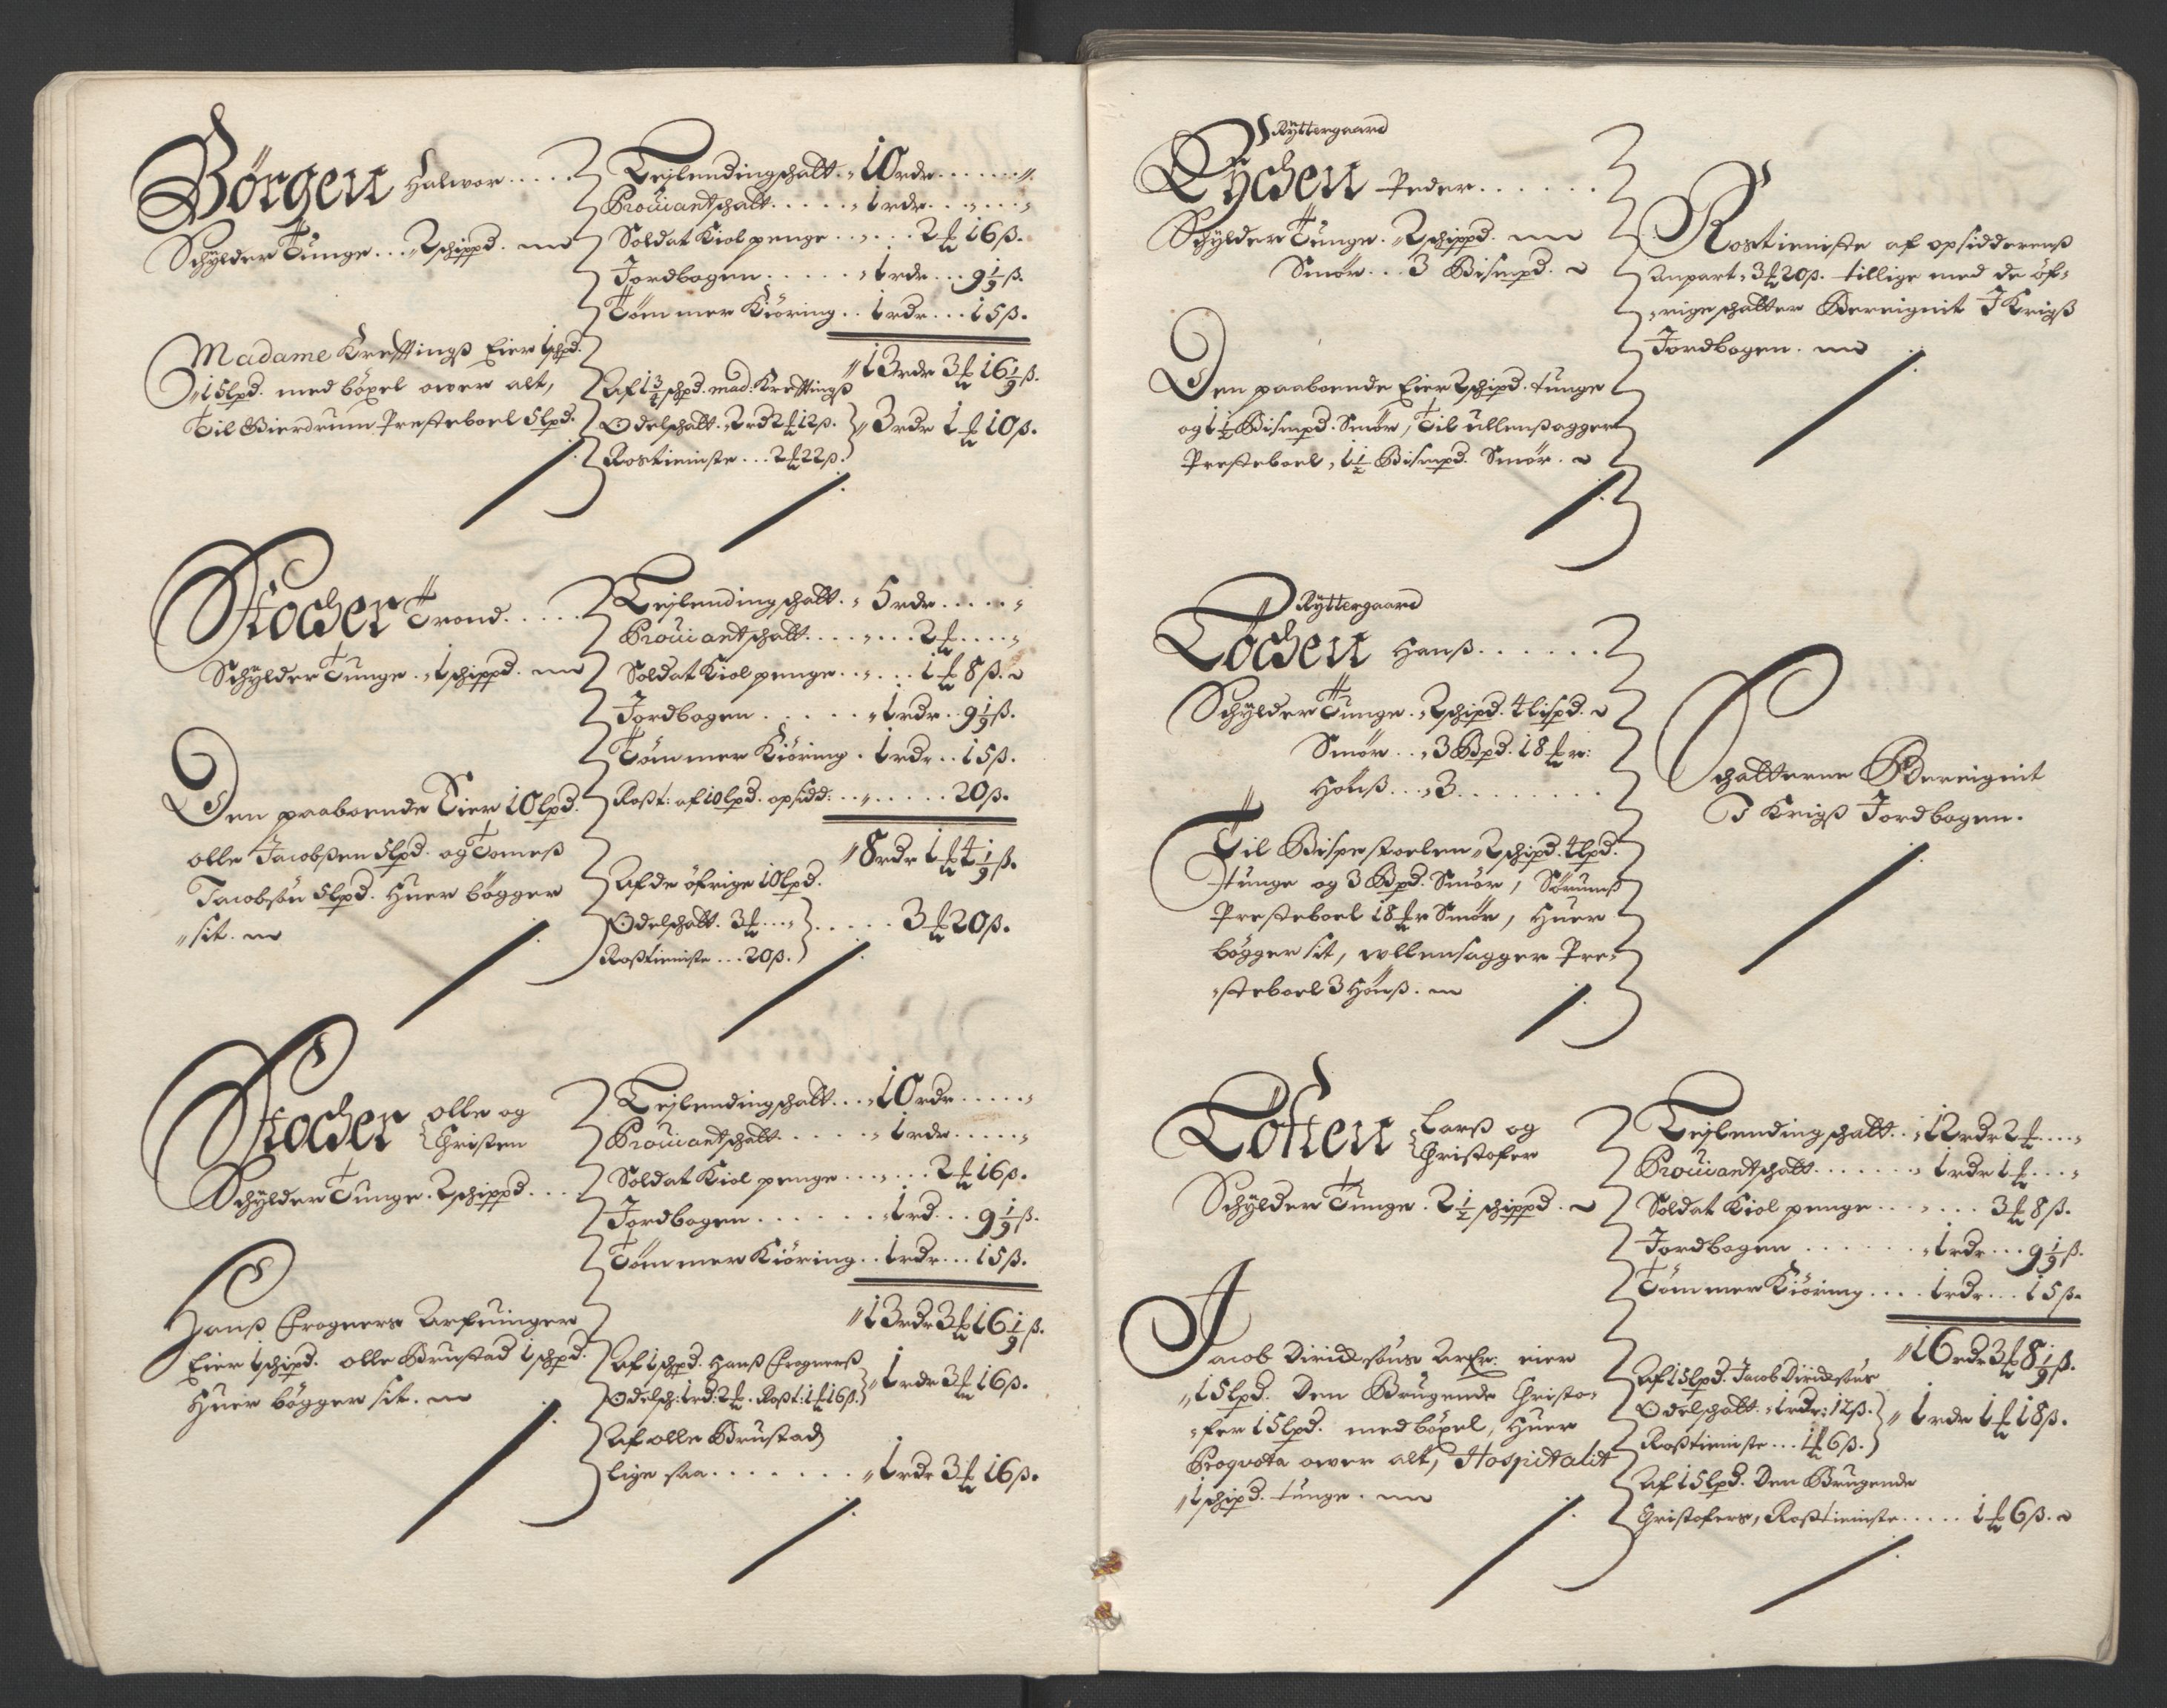 Börgen Halwor . . . . .
Schylder Tunge . . . 2 schippd.
Madame Kreftingß Eier 1 schpd.
15 lpd. med böxel ower alt,
Til Gierdrum Presteboel 5 lpd.
Leylendingschatt . 10 rdr . . . . .
Prouiantschatt . . . . . 1 rdr . . . . .
Soldat Kiol penge . . . . . 2 ℔ 16 ß.
Jordbogen . . . . . 1 rdr . . . 9 1/9 ß.
Tömmer Kiöring . . 1 rdr . . . 15 ß.
13 rdr 3 ℔ 16 1/9 ß.
Af 1 3/4 schpd. mad. Kreftingß
Odelschatt . 2 rd 2 ℔ 12 ß.
Rostieniste . . . 2 ℔ 22 ß.
3 rdr 1 ℔ 10 ß.
Stocker Trond . . . . .
Schylder Tunge . 1 schippd.
Den paaboende Eier 10 lpd.
olle Jacobßen 5 lpd. og Tomeß
Jacobsön 5 lpd. Huer bögger
sit.
Leylendingschatt . 5 rdr . . . . .
Prouiantschatt . . . . . 2 ℔ . . . .
Soldat Kiol penge . . . . . 1 ℔ 8 ß.
Jordbogen . . . . . 1 rdr . . 9 1/9 ß.
Tömmer Kiöring . 1 rdr . . 15 ß.
Roßt: af 10 lpd. opsidd: . . . . . 20 ß.
8 rdr 1 ℔ 4 1/9 ß.
Af de öfrige 10 lpd.
Odelschatt . 3 ℔ . . .
Roßtieniste . . . 20 ß.
. . . . . 3 ℔ 20 ß.
Stocker olle og
Christen
Schylder Tunge . 2 schippd . . .
Hanß Frogners Arfuinger
Eier 1 schipd. olle Brustad 1 schpd.
Huer bögger sit.
Leylendingschatt . . . 10 rdr . . . . .
Prouiantschatt . . . . . 1 rdr . . . . .
Soldat Kiol penge . . . . . 2 ℔ 16 ß.
Jordbogen . . . . . . 1 rd . . . 9 1/9 ß.
Tömmer Kiöring . . 1 rdr . . . 15 ß.
13 rdr 3 ℔ 16 1/9 ß.
Af 1 schpd. Hanß Frognerß
Odelsch: 1 rd: 2 ℔ . Roßt: 1 ℔ 16 ß.
1 rdr 3 ℔ 16 ß.
Af olle Brustad
lige saa . . . . . . . 1 rdr 3 ℔ 16 ß.
Ryttergaard
Peder . . . . . .
Schylder Tunge . 2 schippd.
Smör . . . 3 Bismpd.
Den paaboende Eier 2 schipd. tunge
og 1 1/2 Bismpd. Smör, Til ullenßagger
Presteboel, 1 1/2 Bismpd. Smör.
Rostieniste af opsidderenß
Anpart, 3 ℔ 20 ß. tillige med de öf-
rige schatter Bereignit J Krigß
Jordbogen.
Ryttergaard
Töchen Hanß . . . . . .
Schylder Tunge . 2 schipd. 4 lispd.
Smör . . . 3 Bpd. 18 ℔r:
Hönß . . . 3 . . . . . . .
Til Bispestoelen 2 schipd. 4 lpd.
tunge og 3 Bpd. Smör, Sörumß
Presteboel 18 ℔r Smör, Huer
bögger sit, ullensagger Pre-
steboel 3 Hönß.
Schatterne Bereignit
J Krigß Jordbogen.
Töften Larß og
Christofer
Schylder Tunge . 2 1/2 schippd.
Jacob Dirichsöns Arfr: eier
15 lpd. Den Brugende Christo-
fer 15 lpd. med böxel, Huer
Proqvota ower alt, Hospitalit
1 schipd. tunge.
Leylendingschatt . . 12 rdr 2 ℔ . . . .
Prouiantschatt . . . . . . 1 rdr 1 ℔ . . . .
Soldat Kiol penge . . . . . . 3 ℔ 8 ß.
Jordbogen . . . . . . 1 rdr . . . 9 1/9 ß.
Tömmer Kiöring . . . . 1 rdr . . . 15 ß.
16 rdr 3 ℔ 8 1/9 ß.
Af 15 lpd. Jacob Dirichsöns
Odelschatt . 1 rdr: 12 ß.
Roßtieniste . . . 1 ℔ 6 ß.
1 rdr 1 ℔ 18 ß.
Af 15 lpd. Den Brugende
Christofers, Roßtieniste . . . . . 1 ℔ 6 ß.